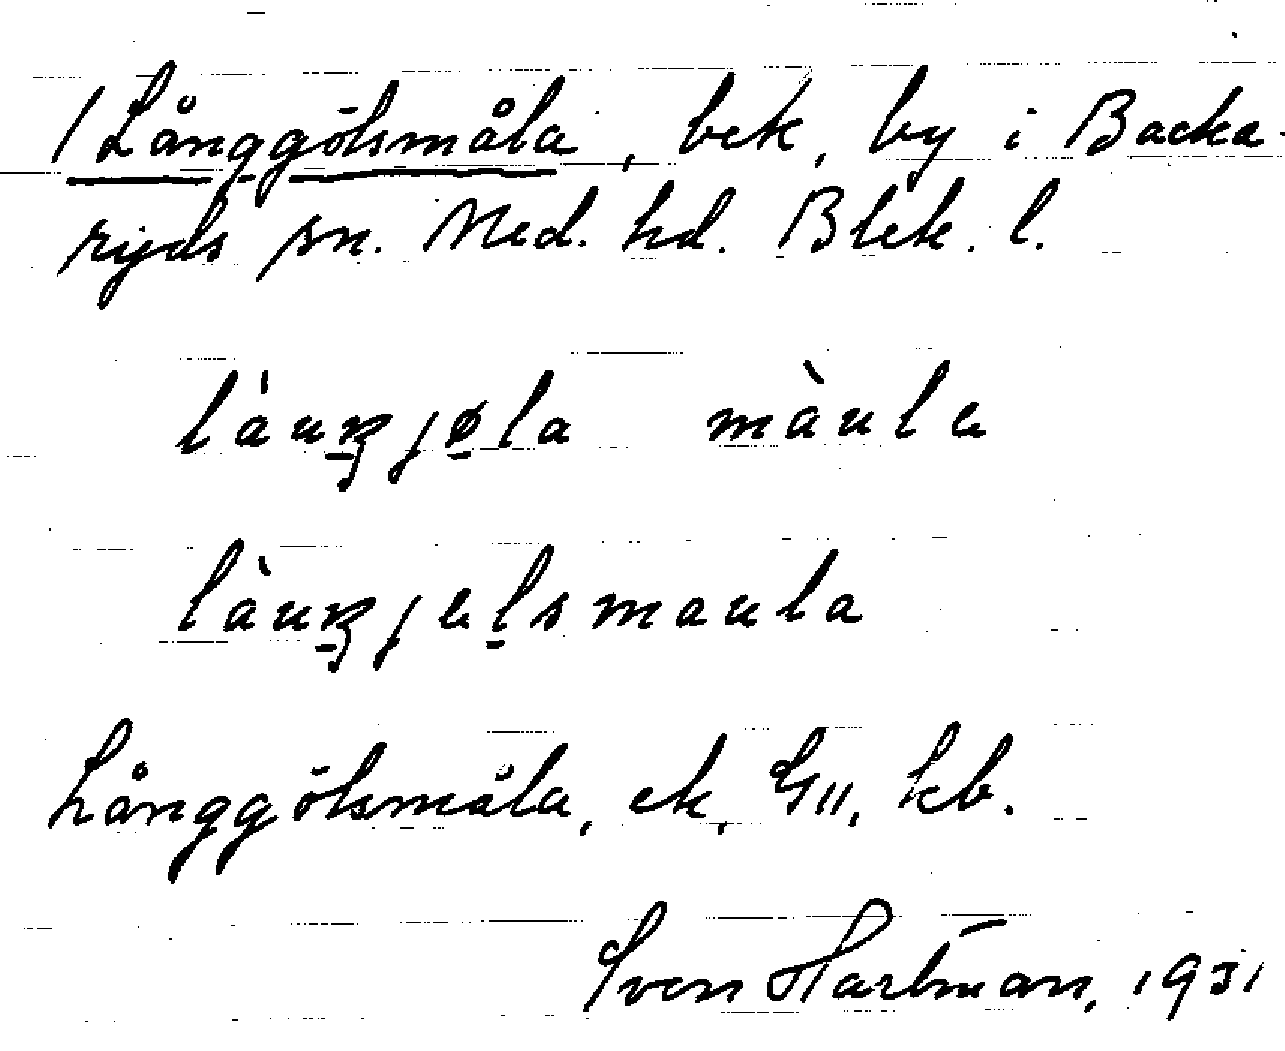 / Långgölsmåla, bek, by i Backa-
ryds sn. Med. hd. Blek. l.
làuŋjøla màula
làuŋjelsmaula
Långgölsmåla, ek, GII, kb.
Sven Hartman, 1931